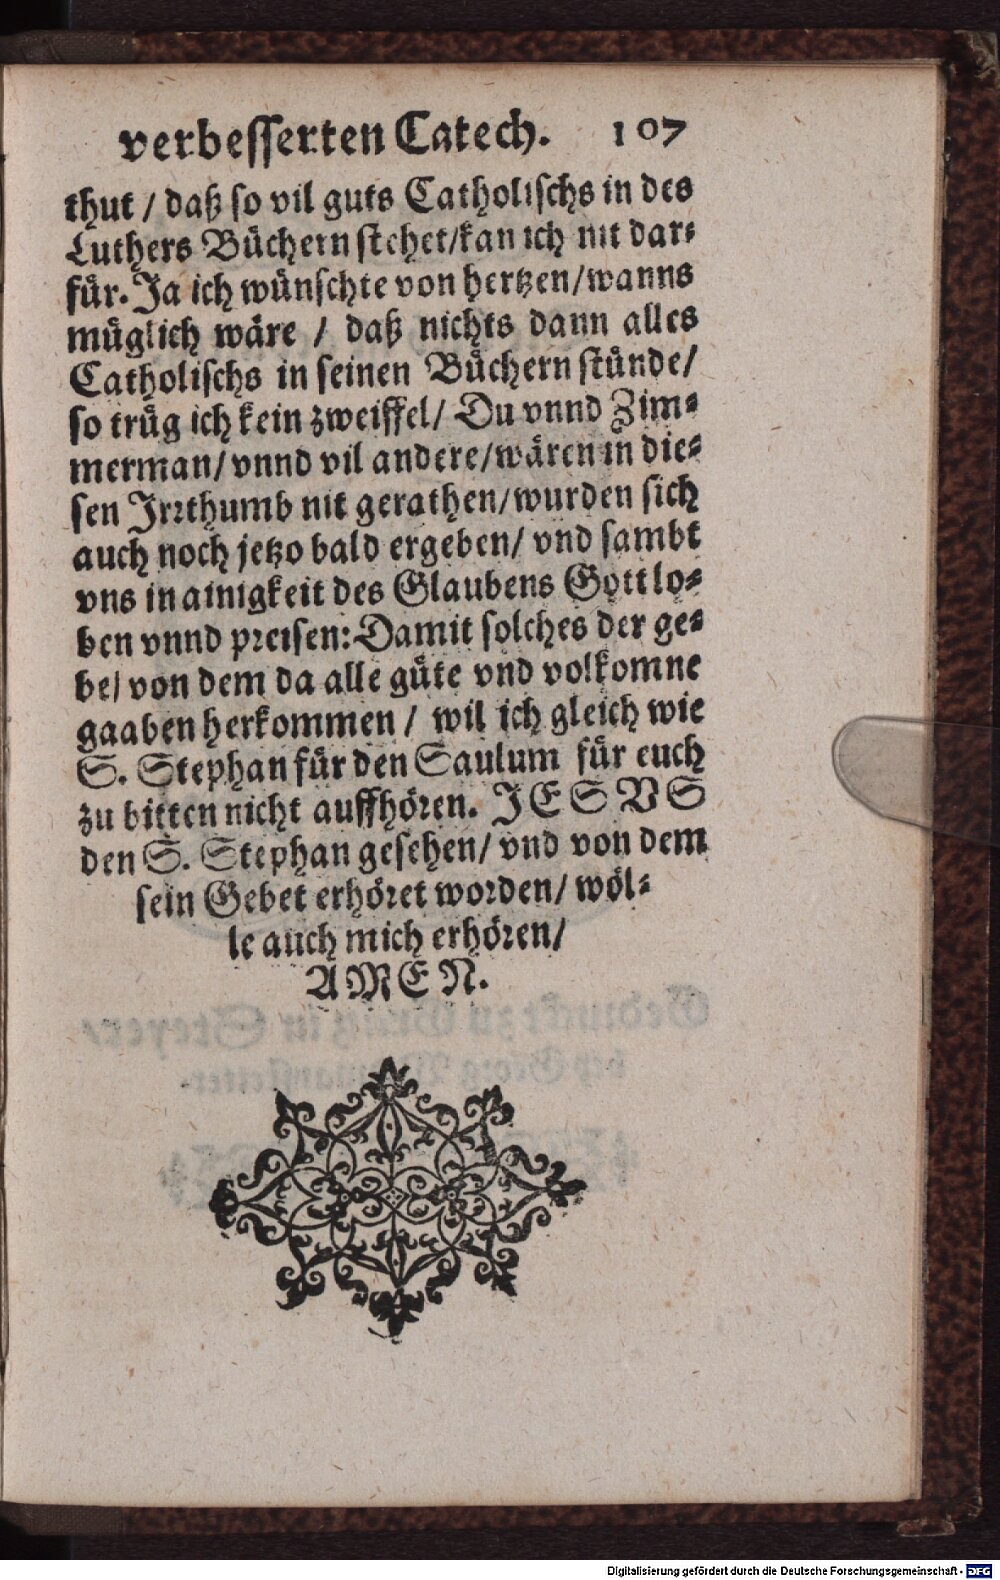 verbesserten Catech. 107
thut / daß so vil guts Catholischs in des
Luthers Bůchern stehet/kan ich nit dar⸗
fůr. Ja ich wůnschte von hertzen/wanns
můglich wäre / daß nichts dann alles
Catholischs in seinen Bůchern stůnde/
so trůg ich kein zweiffel/ Du vnnd Zim⸗
merman/ vnnd vil andere/wären in die⸗
sen Irrthumb nit gerathen/wurden sich
auch noch jetzo bald ergeben/ vnd sambt
vns in ainigkeit des Glaubens Gott lo⸗
ben vnnd preisen: Damit solches der ge⸗
be/ von dem da alle gůte vnd volkomne
gaaben herkommen / wil ich gleich wie
S. Stephan fůr den Saulum fůr euch
zu bitten nicht auffhören. JESVS
den S. Stephan gesehen/ vnd von dem
sein Gebet erhöret worden/ wöl⸗
le auch mich erhören/
AMEN.
Digitalisierung gefördert durch die Deutsche Forschungsgemeinschaft - DFG